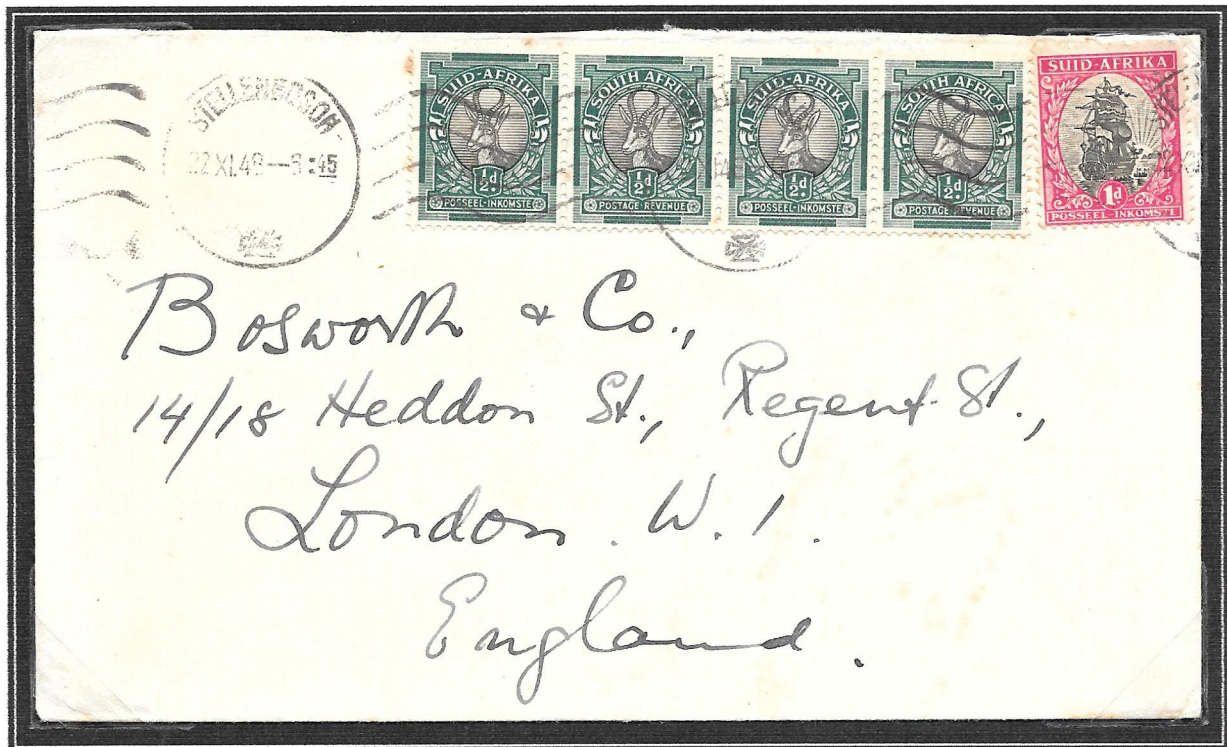 STELLENBOSCH
22 XI. 49 -- 3:45
SUID-AFRIKA
½d
POSSEEL-INKOMSTE
SOUTH AFRICA
½d
POSTAGE-REVENUE
SUID-AFRIKA
½d
POSSEEL-INKOMSTE
SOUTH AFRICA
½d
POSTAGE REVENUE
SUID-AFRIKA
1d
POSSEEL-INKOMSTE
Bosworth & Co.,
14/18 Heddon St., Regent St.,
London. W.1.
England.